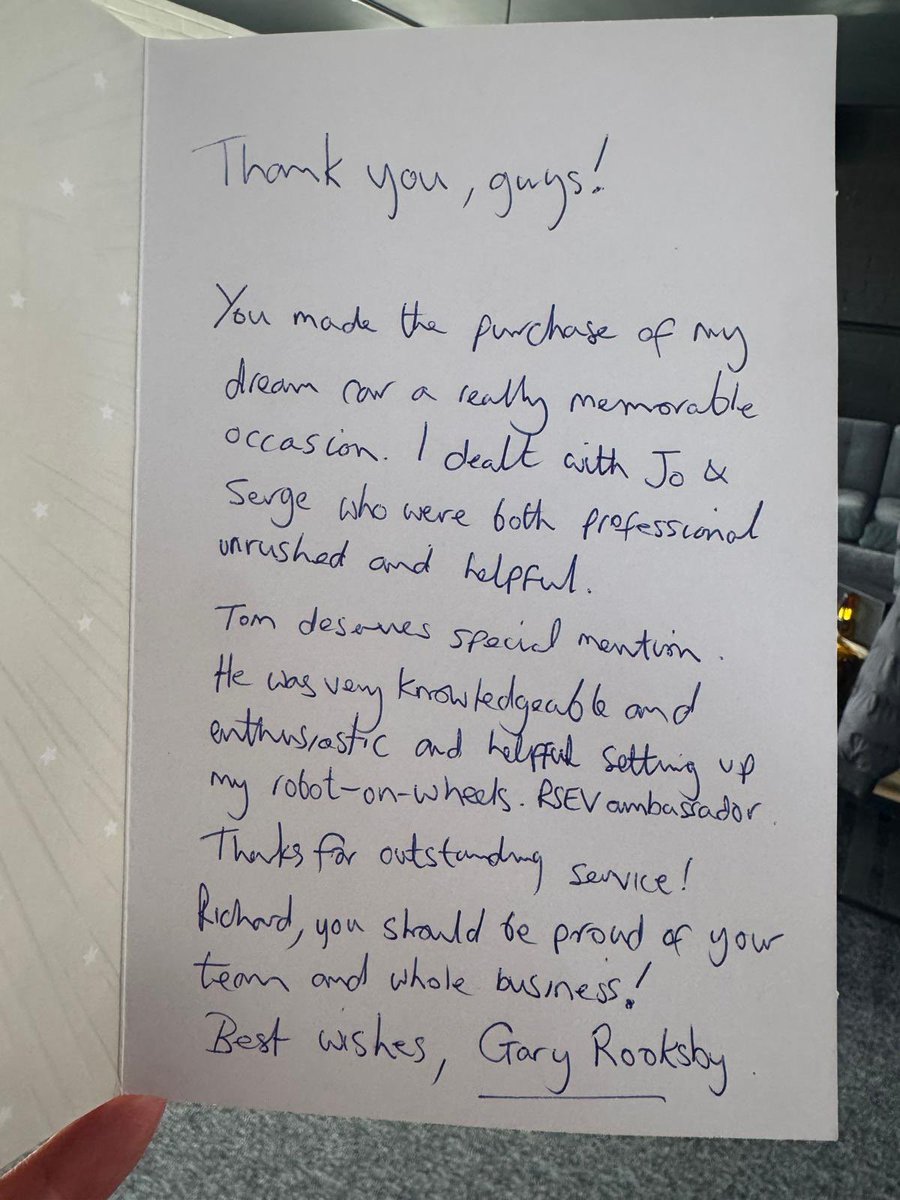 Thank you, guys!
You made the purchase of my
dream car a really memorable
occasion. I dealt with Jo &
Serge who were both professional
unrushed and helpful.
Tom deserves special mention.
He was very knowledgeable and
enthusiastic and helpful setting up
my robot-on-wheels. RSEV ambassador.
Thanks for outstanding service!
Richard, you should be proud of your
team and whole business!
Best wishes, Gary Rooksby.